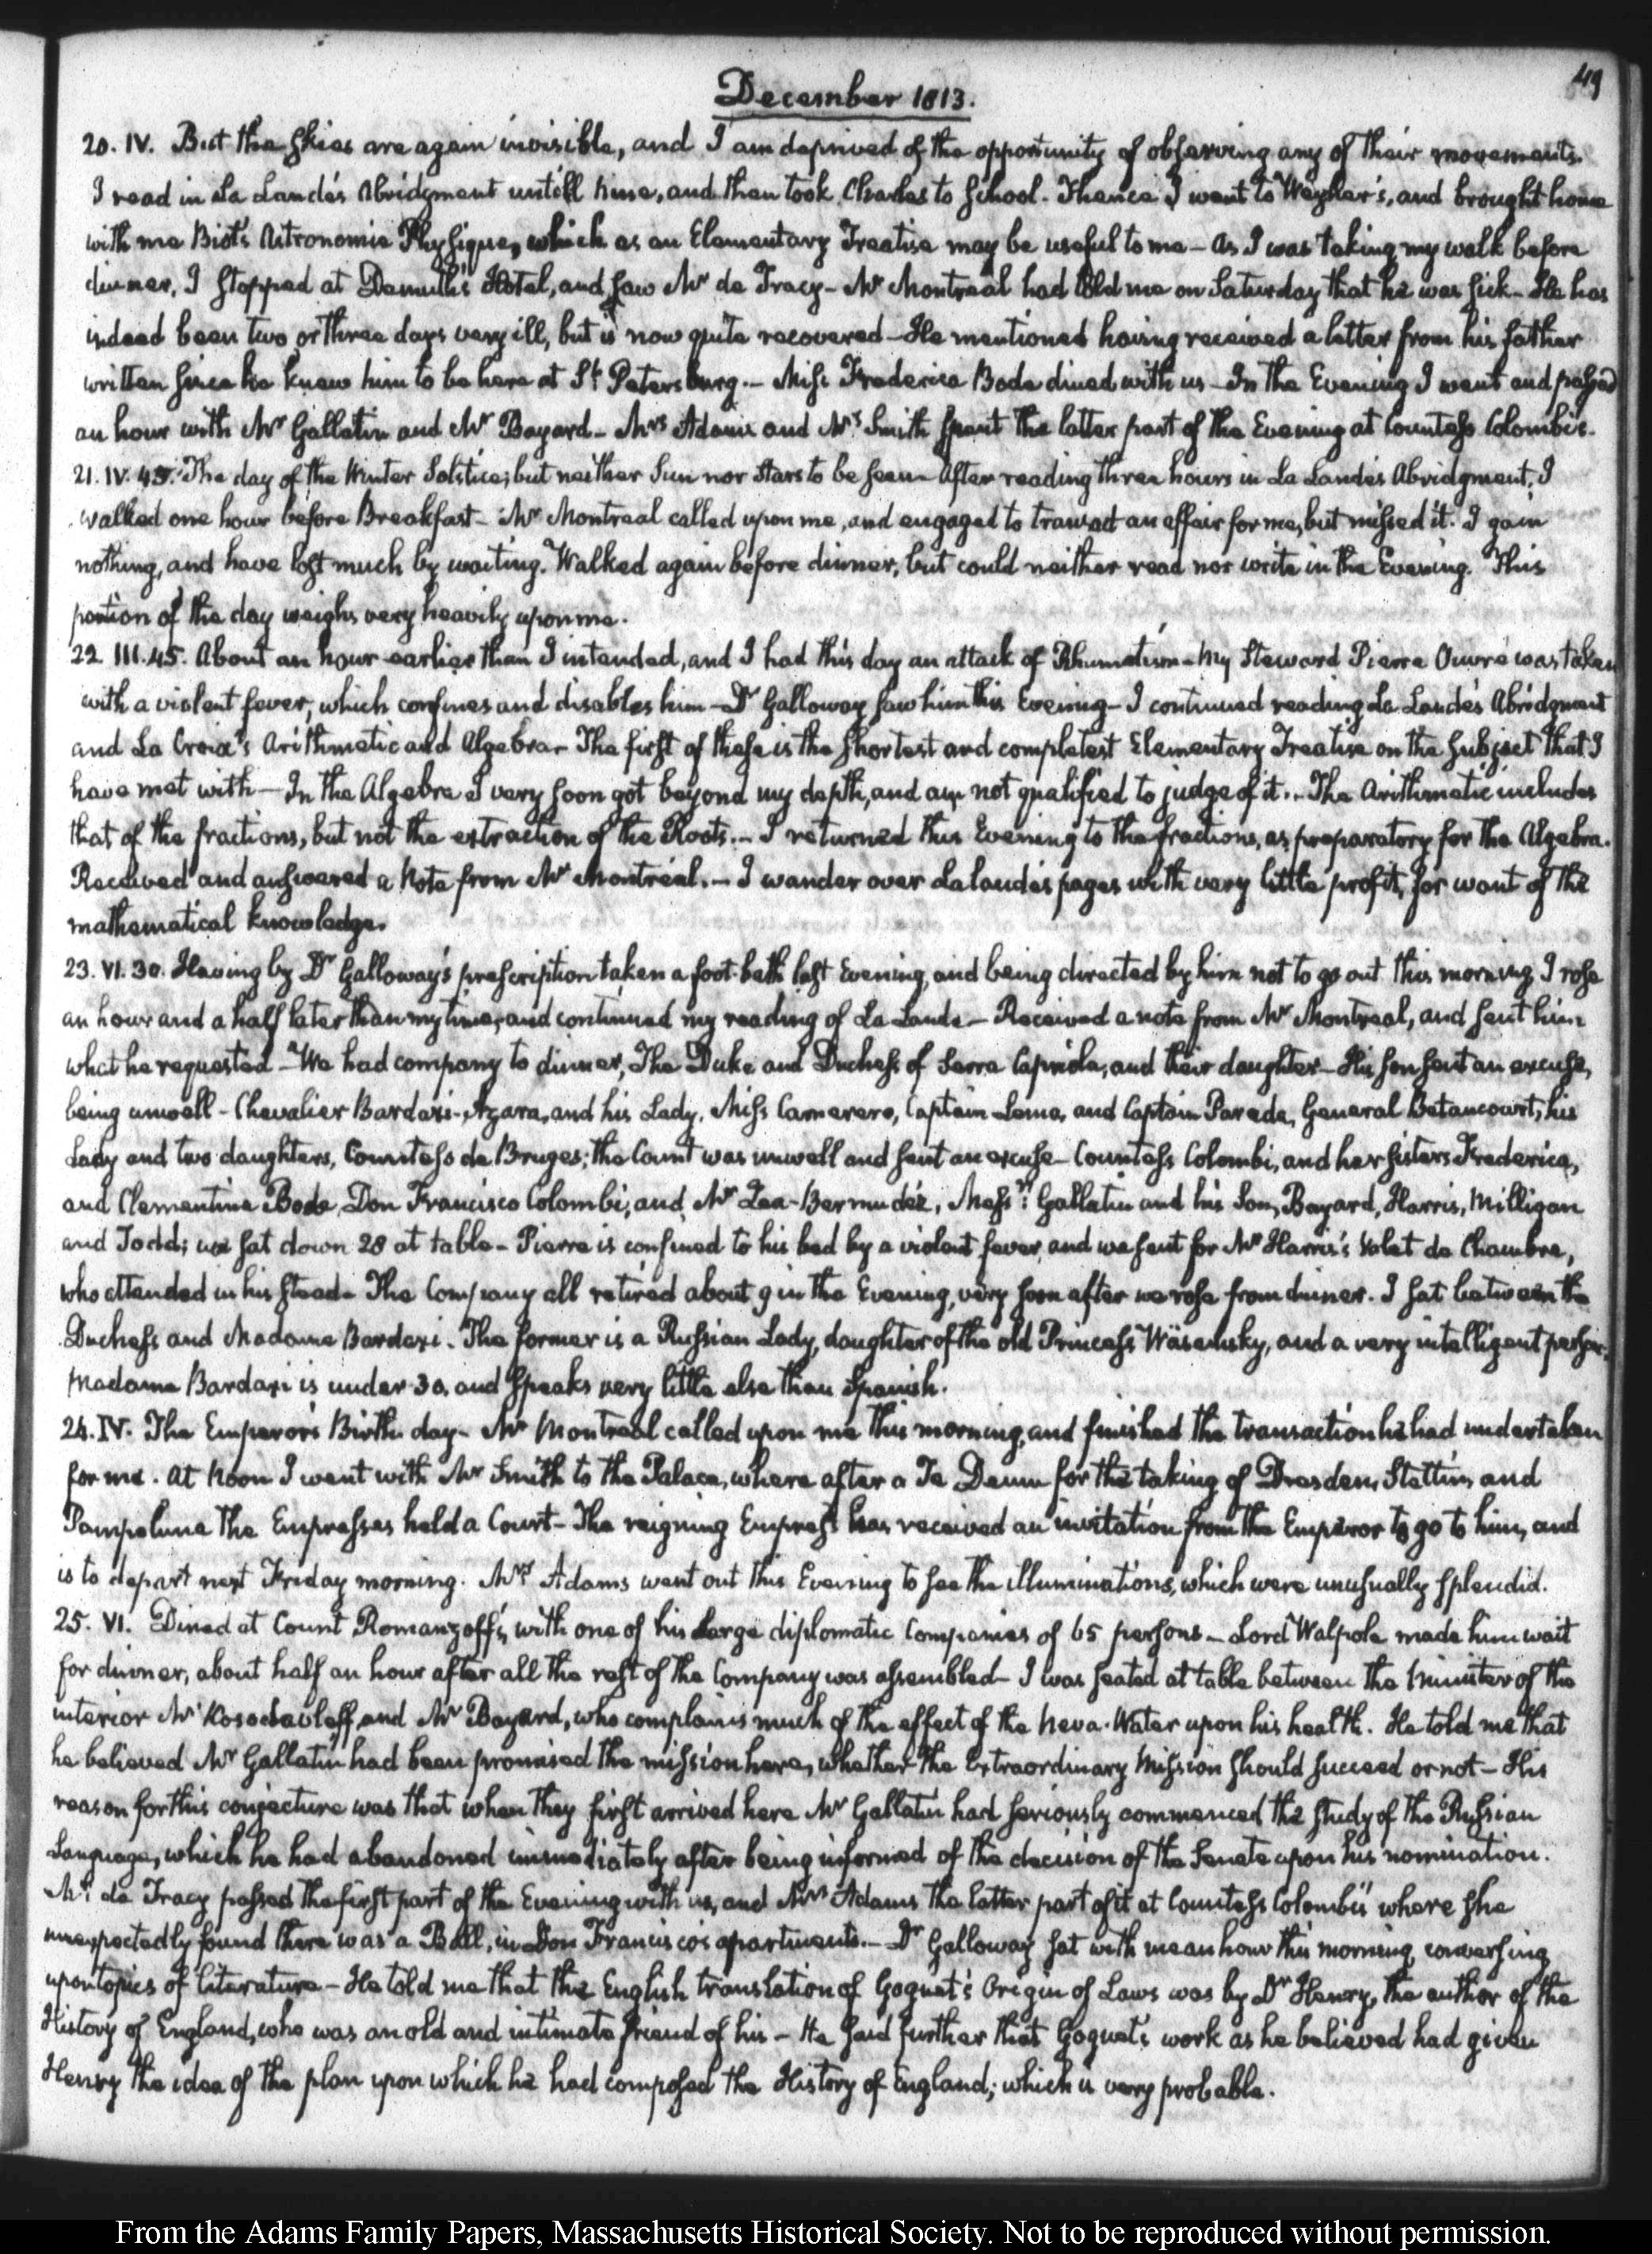 49
December 1813.
20. IV. But the skies are again invisible, and I am deprived of the opportunity of observing any of their movements.
I read in La Lande's Abridgment untill nine, and then took Charles to School. Thence I went to Weyher's, and brought home
with me Biot's Astronomie Physique, which as an Elementary Treatise may be useful to me – As I was taking my walk before
dinner, I stopped at Demuth's Hotel, and saw Mr de Tracy – Mr Montreal had told me on Saturday that he was sick – He has
indeed been two or three days very ill, but is now quite recovered – He mentioned having received a letter from his father
written since he knew him to be here at St Petersburg. – Miss Frederica Bode dined with us – In the Evening I went and passed
an hour with Mr Gallatin and Mr Bayard – Mrs Adams and Mrs Smith spent the latter part of the Evening at Countess Colombi's.
21. IV. 45. The day of the Winter Solstice; but neither Sun nor Stars to be seen – After reading three hours in La Lande's Abridgment, I
walked one hour before Breakfast – Mr Montreal called upon me, and engaged to transact an affair for me, but missed it. I gain
nothing, and have lost much by waiting. Walked again before dinner, but could neither read nor write in the Evening. This
portion of the day weighs very heavily upon me.
22. III. 45. About an hour earlier than I intended, and I had this day an attack of Rhumatism – My Steward Pierre Ouvré was taken
with a violent fever, which confines and disables him – Dr Galloway saw him this Evening – I continued reading La Lande's Abridgment
and La Croix's Arithmetic and Algebra – The first of these is the shortest and completest Elementary Treatise on the subject that I
have met with – In the Algebra I very soon got beyond my depth, and am not qualified to judge of it. – The Arithmetic includes
that of the fractions, but not the extraction of the Roots. – I returned this Evening to the fractions, as preparatory for the Algebra.
Received and answered a Note from Mr Montréal. – I wander over Lalande's pages with very little profit, for want of the
mathematical knowledge.
23. VI. 30. Having by Dr Galloway's prescription taken a foot-bath last Evening, and being directed by him not to go out this morning, I rose
an hour and a half later than my time, and continued my reading of La Lande – Received a note from Mr Montreal, and sent him
what he requested – We had company to dinner, The Duke and Duchess of Serra Capriola, and their daughter – His son sent an excuse,
being unwell – Chevalier Bardaxi-Azara, and his Lady, Miss Camerero, Captain Lema, and Captain Parada, General Betancourt, his
Lady and two daughters, Countess de Bruges; the Count was unwell and sent an excuse – Countess Colombi, and her sisters Frederica,
and Clementina Bode, Don Francisco Colombi, and Mr Zea-Bermudéz, Messrs Gallatin and his Son, Bayard, Harris, Milligan
and Todd; we sat down 28 at table – Pierre is confined to his bed by a violent fever, and we sent for Mr Harris's Valet de Chambre,
who attended in his stead – The Company all retired about 9 in the Evening, very soon after we rose from dinner. I sat between the
Duchess and Madame Bardaxi. The former is a Russian Lady, daughter of the old Princess Wäsemsky, and a very intelligent person.
Madame Bardaxi is under 30, and speaks very little else than Spanish.
24. IV. The Emperor's Birth day – Mr Montreal called upon me this morning, and finished the transaction he had undertaken
for me. At Noon I went with Mr Smith to the Palace, where after a Te Deum for the taking of Dresden, Stettin, and
Pampelune The Empresses held a Court – The reigning Empress has received an invitation from the Emperor to go to him, and
is to depart next Friday morning. Mrs Adams went out this Evening to see the illuminations, which were unusually splendid.
25. VI. Dined at Count Romanzoff's, with one of his large diplomatic Companies of 65 persons – Lord Walpole made him wait
for dinner, about half an hour after all the rest of the Company was assembled – I was seated at table between the Minister of the
interior Mr Kosodavleff and Mr Bayard, who complains much of the effect of the Neva-Water upon his health. He told me that
he believed Mr Gallatin had been promised the mission here, whether the Extraordinary Mission should succeed or not – His
reason for this conjecture was that when they first arrived here Mr Gallatin had seriously commenced the study of the Russian
Language, which he had abandoned immediately after being informed of the decision of the Senate upon his nomination.
Mr de Tracy passed the first part of the Evening with us, and Mrs Adams the latter part of it at Countess Colombi's where she
unexpectedly found there was a Ball, in Don Francisco's apartments. – Dr Galloway sat with me an hour this morning, conversing
upon topics of literature – He told me that the English translation of Goguet's Origin of Laws was by Dr Henry, the author of the
History of England, who was an old and intimate friend of his – He said further that Goguet's work as he believed had given
Henry the idea of the plan upon which he had composed the History of England; which is very probable.
From the Adams Family Papers, Massachusetts Historical Society. Not to be reproduced without permission.